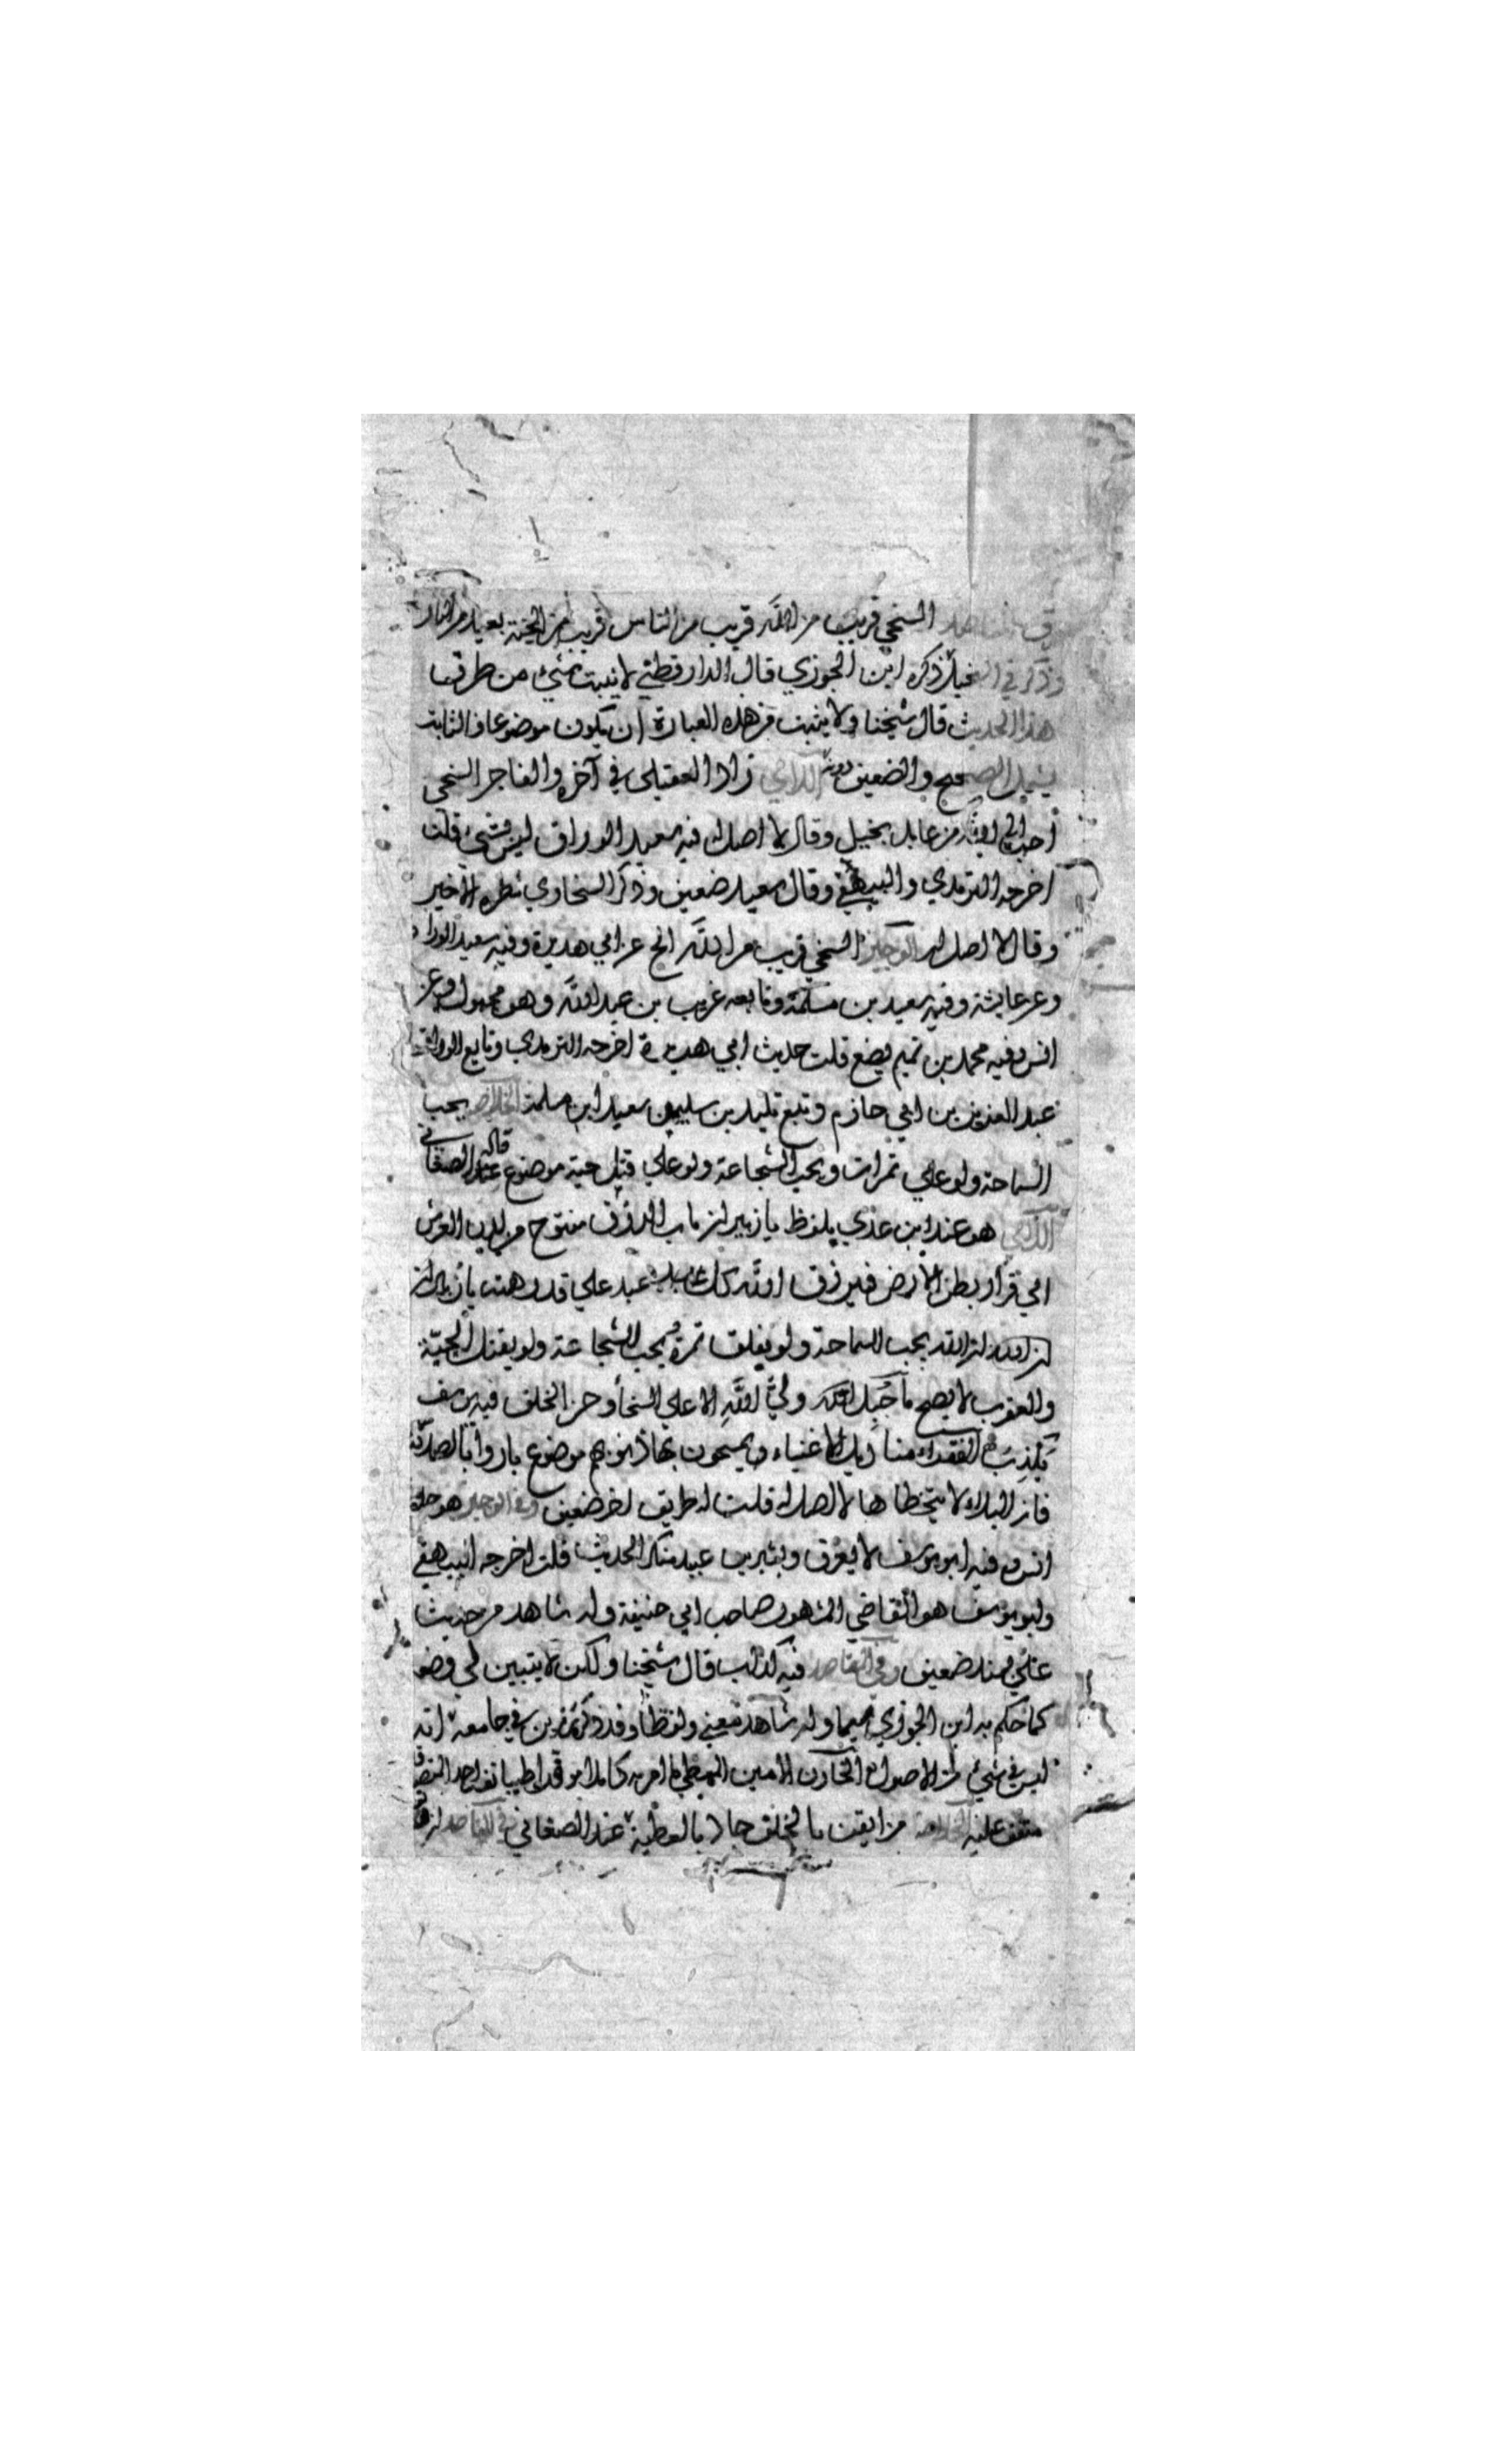 في المقاصد السخي قريب من الله قريب من الناس قريب من الجنة بعيد من النار
وذكر في البخيل ذكره ابن الجوزي قال الدارقطني لا يثبت بشئ من طرقه
هذا الحديث قال شيخنا ولا يثبت من هذه العبارة ان يكون موضوعا فالثابت
يشمل الصحيح والضعيف دونه اللآلي زاد العقيلي في آخره والفاجر السخي
أحب الى الله من عابد بخيل وقال لا اصل له فيه سعيد الوراق ليس بشئ قلت
اخرجه الترمذي والبيهقي وقال سعيد ضعيف وذكر السخاوي شطره الاخير
وقال لا اصل له الوجيز السخي قريب من الله الخ عن ابي هريرة وفيه سعيد الوراق
وعن عايشة وفيه سعيد بن مسلمة وتابعه غريب بن عبد الله وهو مجهول وعن
انس وفيه محمد بن تميم يضع قلت حديث ابي هريرة اخرجه الترمذي وتابع الوراق
عبد العزيز بن ابي حازم وتبع تليد بن سليمن سعيد ابن مسلمة الخلاصة يحب
السماحة ولو على تمرات ويحب الشجاعة ولو على قتل حية موضوع قاله الصغاني
اللآلي هو عند ابن عدي بلفظ يا زبير ان باب الرزق مفتوح من لدن العرش
الى قرار بطن الارض فيرزق الله كل عبد على قدر همته يا زبير ان
ان الله يحب السماحة ولو بفلق تمرة ويحب الشجاعة ولو بقتل الحية
والعقرب لا يصح ما جبل الله ولي الله الا على السخأ وحسن الخلق فيه يوسف
يكذب الفقراء مناديل الاغنياء يمسحون بها ذنوبهم موضوع بادروا بالصدقة
فان البلاء لا يتخطاها لا اصل له قلت له طريق اخر ضعيف وفي الوجيز هو حديث
انس وفيه ابو يوسف لا يعرف وبشر بن عبيد منكر الحديث قلت اخرجه البيهقي
وابو يوسف هو القاضي المشهور صاحب ابي حنيفة وله شاهد من حديث
علي بسند ضعيف وفي المقاصد فيه كذاب قال شيخنا ولكن لا يتبين لي وضعه
كما حكم به ابن الجوزي سيما وله شاهد بمعنى ولفظا وقد ذكره رزين في جامعه انه
ليس في شئ من الاصول الخازن الامين المعطي ما امر به كاملا موفرا طيبا نفسا احد المتصدقين
متفق عليه الخلاصة من ايقن بالخلف جاد بالعطية عند الصغاني في المقاصد